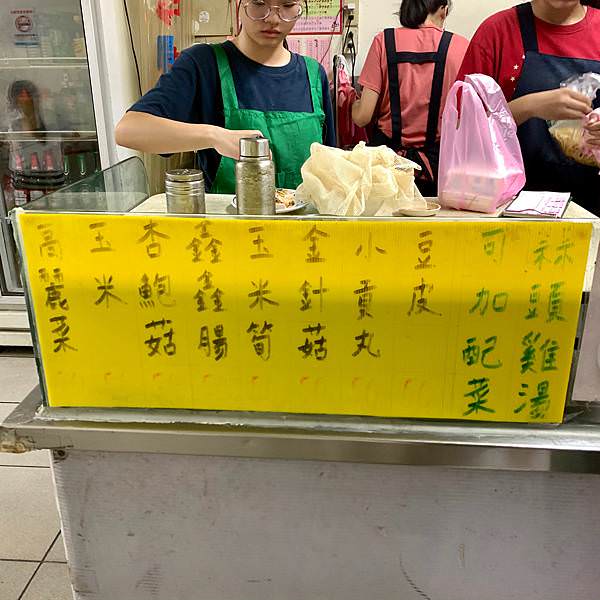 蒜頭雞湯
可加配菜
豆皮
小貢丸
金針菇
玉米筍
鑫鑫腸
杏鮑菇
玉米
高麗菜